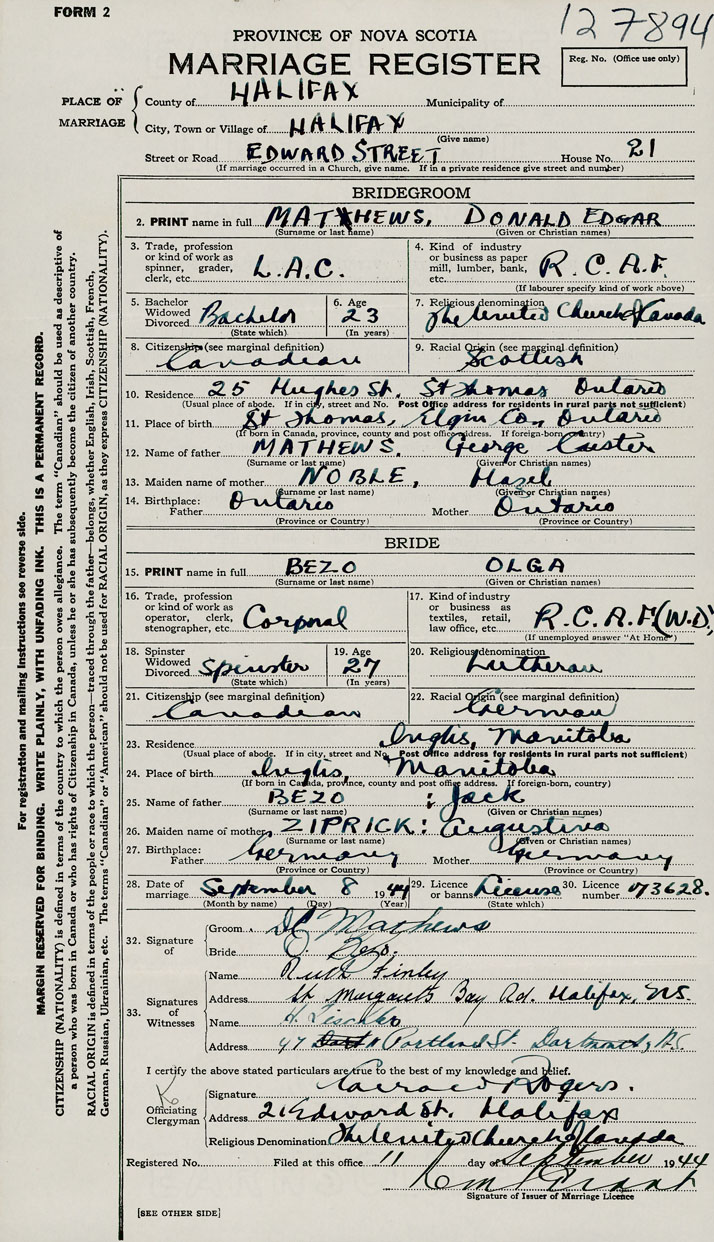 FORM 2
127894
PROVINCE OF NOVA SCOTIA
MARRIAGE REGISTER
Reg. No. (Office use only)
PLACE OF MARRIAGE
County of HALIFAX Municipality of
City, Town or Village of HALIFAX
(Give name)
Street or Road EDWARD STREET House No. 21
(If marriage occurred in a Church, give name. If in a private residence give street and number)
BRIDEGROOM
2. PRINT name in full MATHEWS, DONALD EDGAR
(Surname or last name) (Given or Christian names)
3. Trade, profession or kind of work as spinner, grader, clerk, etc. L.A.C.
4. Kind of industry or business as paper mill, lumber, bank, etc. R.C.A.F.
(If labourer specify kind of work above)
5. Bachelor Widowed Divorced Bachelor
(State which)
6. Age 23
(In years)
7. Religious denomination The United Church of Canada
8. Citizenship (see marginal definition) Canadian
9. Racial Origin (see marginal definition) Scottish
10. Residence 25 Hughes St. St Thomas Ontario
(Usual place of abode. If in city, street and No. Post Office address for residents in rural parts not sufficient)
11. Place of birth St Thomas, Elgin Co., Ontario
(If born in Canada, province, county and post office address. If foreign-born, country)
12. Name of father MATHEWS. George
(Surname or last name) (Given or Christian names)
13. Maiden name of mother NOBLE, Hazel
(Surname or last name) (Given or Christian names)
14. Birthplace: Father Ontario Mother Ontario
(Province or Country) (Province or Country)
BRIDE
15. PRINT name in full BEZO OLGA
(Surname or last name) (Given or Christian names)
16. Trade, profession or kind of work as operator, clerk, stenographer, etc. Corporal
17. Kind of industry or business as textiles, retail, law office, etc. R.C.A.F. (W.D)
(If unemployed answer "At Home")
18. Spinster Widowed Divorced Spinster
(State which)
19. Age 27
(In years)
20. Religious denomination Lutheran
21. Citizenship (see marginal definition) Canadian
22. Racial Origin (see marginal definition) German
23. Residence Inglis, Manitoba
(Usual place of abode. If in city, street and No. Post Office address for residents in rural parts not sufficient)
24. Place of birth Inglis, Manitoba
(If born in Canada, province, county and post office address. If foreign-born, country)
25. Name of father BEZO : Jack
(Surname or last name) (Given or Christian names)
26. Maiden name of mother ZIPRICK : Augustina
(Surname or last name) (Given or Christian names)
27. Birthplace: Father Germany Mother Germany
(Province or Country) (Province or Country)
28. Date of marriage September 8 1944
(Month by name) (Day) (Year)
29. Licence or banns License
(State which)
30. Licence number 73628.
32. Signature of
Groom D E Mathews
Bride O. Bezo.
33. Signatures of Witnesses
Name Ruth Finley
Address St. Margaret's Bay Rd. Halifax, N.S.
Name H.
Address 47 Portland St. Dartmouth, N.S.
I certify the above stated particulars are true to the best of my knowledge and belief.
Officiating Clergyman
Signature Rogers.
Address 21 Edward St. Halifax
Religious Denomination The United Church of Canada
Registered No. Filed at this office 11 day of September 1944
Signature of Issuer of Marriage Licence
[SEE OTHER SIDE]
For registration and mailing instructions see reverse side.
MARGIN RESERVED FOR BINDING. WRITE PLAINLY, WITH UNFADING INK. THIS IS A PERMANENT RECORD.
CITIZENSHIP (NATIONALITY) is defined in terms of the country to which the person owes allegiance. The term "Canadian" should be used as descriptive of
a person who was born in Canada or who has rights of Citizenship in Canada, unless he or she has subsequently become the citizen of another country.
RACIAL ORIGIN is defined in terms of the people or race to which the person—traced through the father—belongs, whether English, Irish, Scottish, French,
German, Russian, Ukrainian, etc. The terms "Canadian" or "American" should not be used for RACIAL ORIGIN, as they express CITIZENSHIP (NATIONALITY).